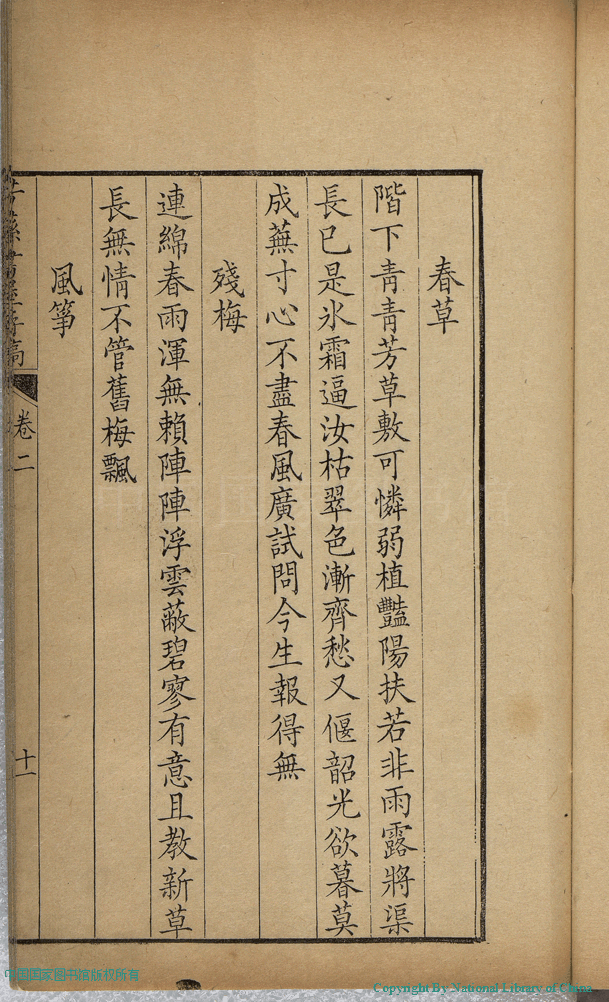 春草
階下青青芳草敷可憐弱植豔陽扶若非雨露將渠
長巳是氷霜逼汝枯翠色漸齊愁又偃韶光欲暮莫
成蕪寸心不盡春風廣試問今生報得無
殘梅
連綿春雨渾無賴陣陣浮雲蔽碧寥有意且教新草
長無情不管舊梅飄
風箏
卷二
十一
中国国家图书馆版权所有
Copyright By National Library of China